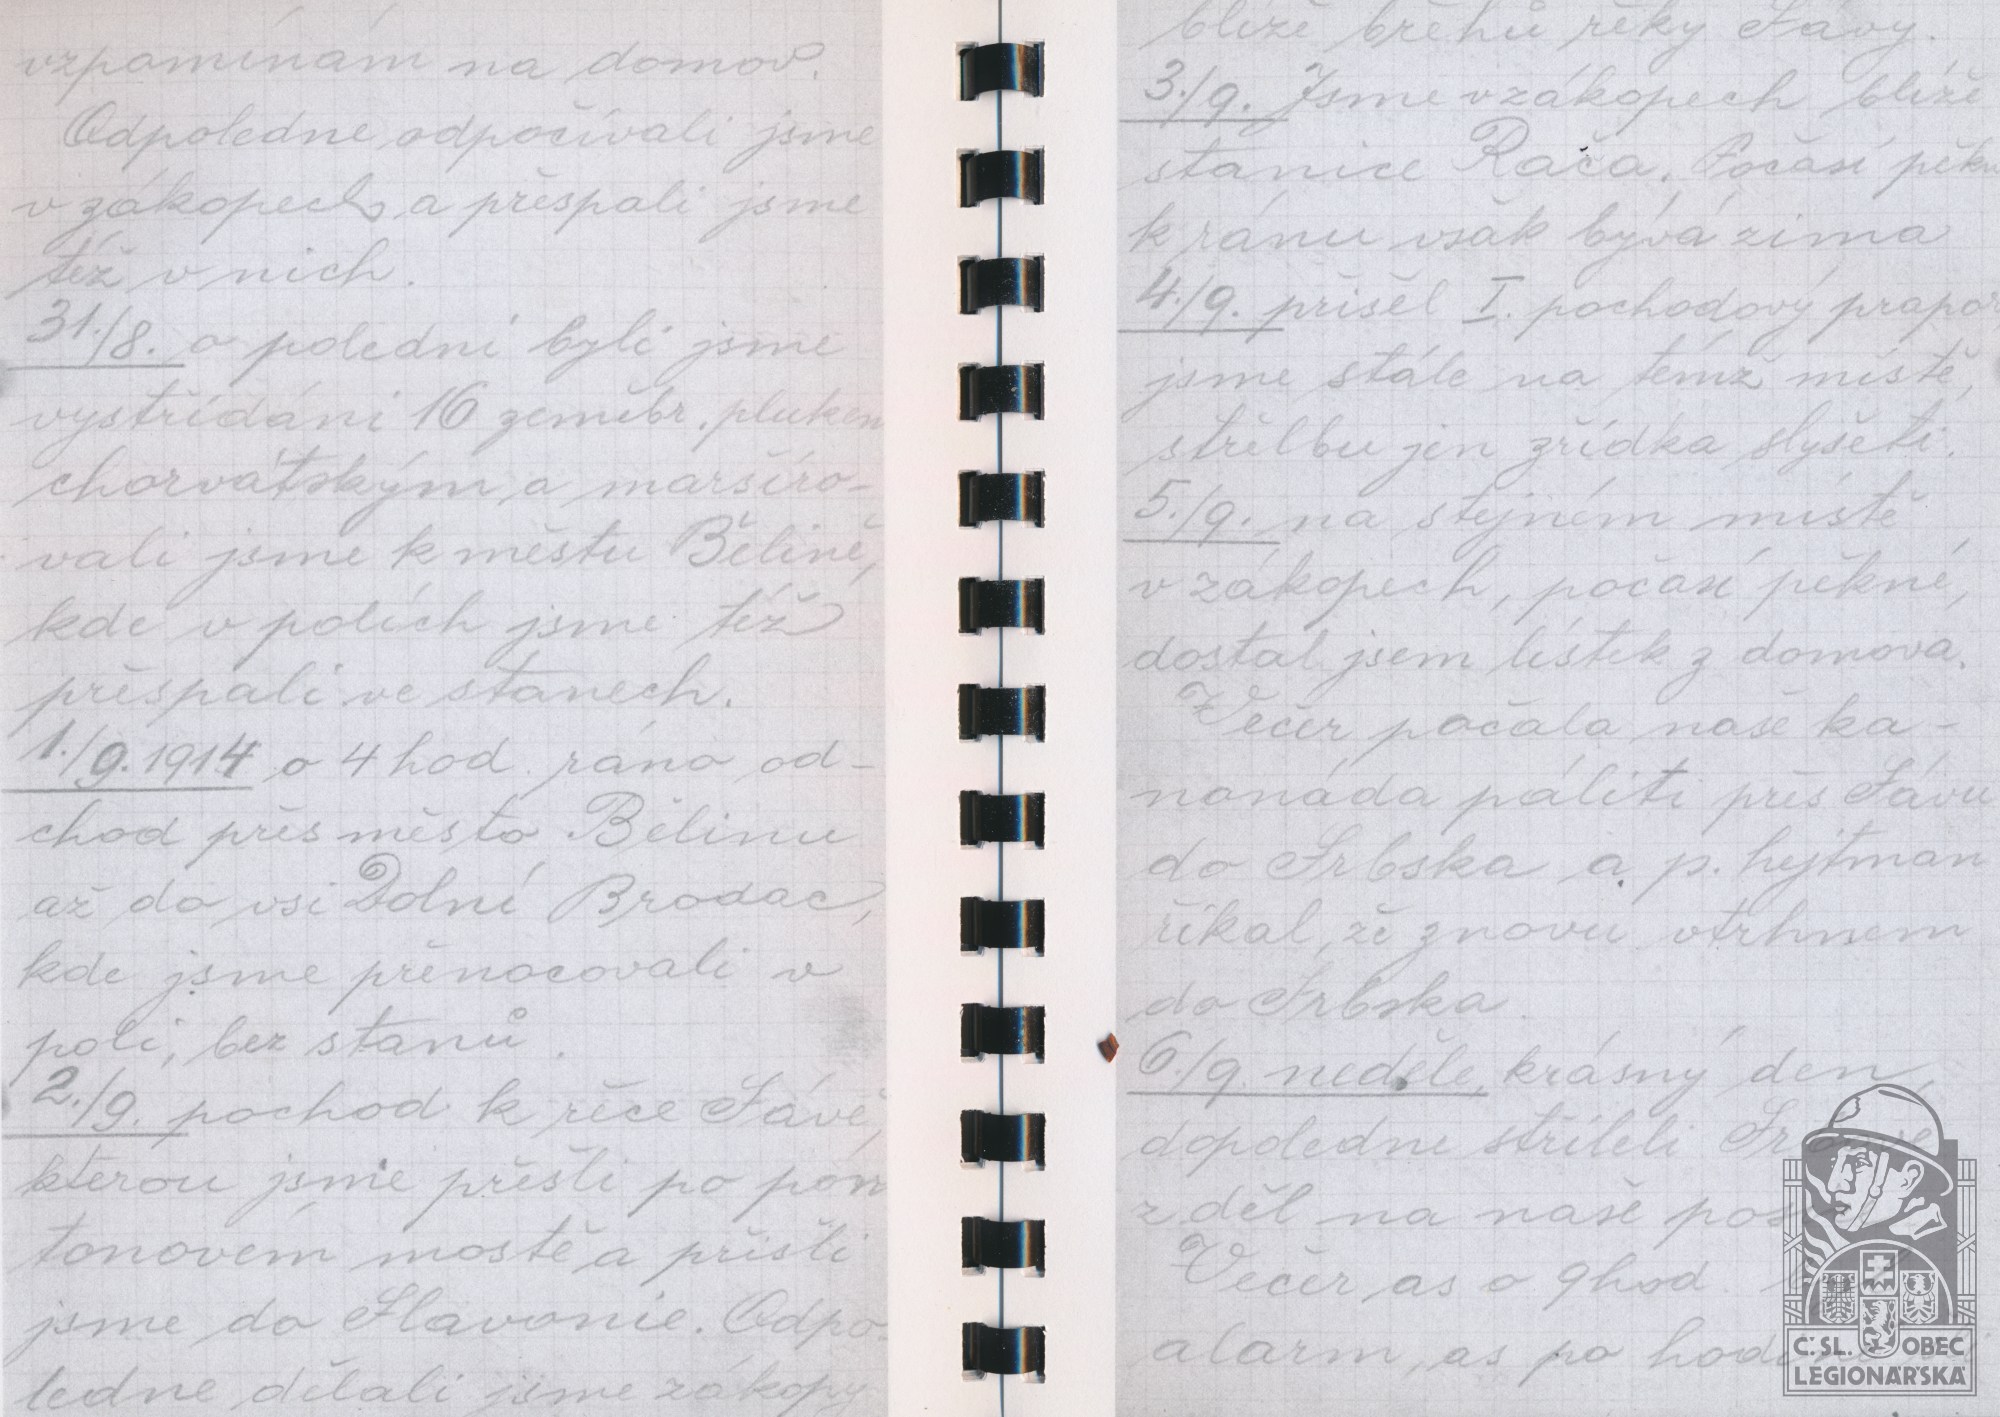 vzpomínám na domov.
Odpoledne odpočívali jsme
v zákopech a přespali jsme
též v nich.
31./8. o polední byli jsme
vystřídáni 16 zeměbr. plukem
chorvátským a marširo-
vali jsme k městu Bělině,
kde v polích jsme též
přespali ve stanech.
1./9. 1914 o 4 hod. ráno od-
chod přes město Bělinu
až do vsi Dolní Brodac,
kde jsme přenocovali v
poli, bez stanů.
2./9. pochod k řece Sávě,
kterou jsme přešli po pon
tonovém mostě a přišli
jsme do Slavonie. Odpo-
ledne dělali jsme zákopy
blíže břehů řeky Sávy.
3./9. Jsme v zákopech blíže
stanice Rača. Počasí pěkn
k ránu však bývá zima
4./9. přišel I. pochodový prapor
jsme stále na témž místě,
střelbu jen zřídka slyšeti.
5./9. na stejném místě
v zákopech, počasí pěkné,
dostal jsem lístek z domova.
Večer počala naše ka-
nonáda páliti přes Sávu
do Srbska a p. hejtman
říkal, že znovu vtrhnem
do Srbska.
6./9. neděle, krásný den,
dopoledne stříleli
z děl na naše
Večer as o 9 hod.
alarm, as po
Č.SL. OBEC
LEGIONÁŘSKÁ